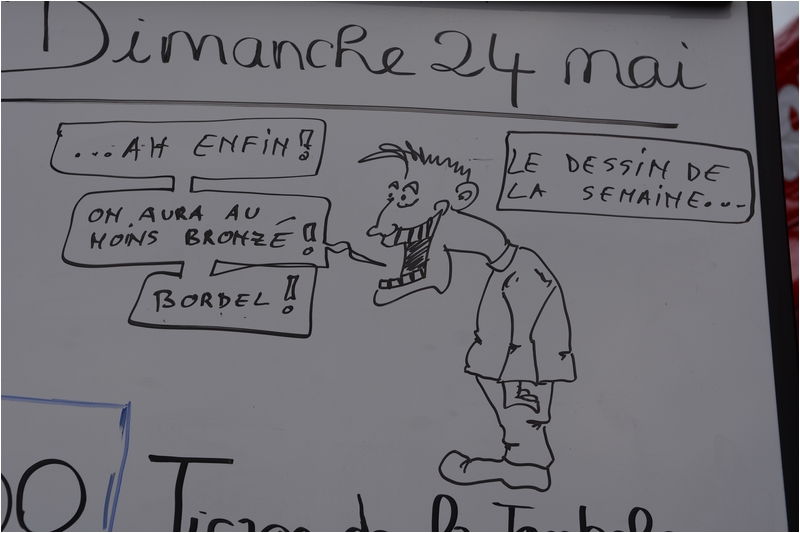 Dimanche 24 mai
...AH ENFIN !
ON AURA AU
MOINS BRONZÉ !
BORDEL !
LE DESSIN DE
LA SEMAINE...
00
Tirage de la Tombola